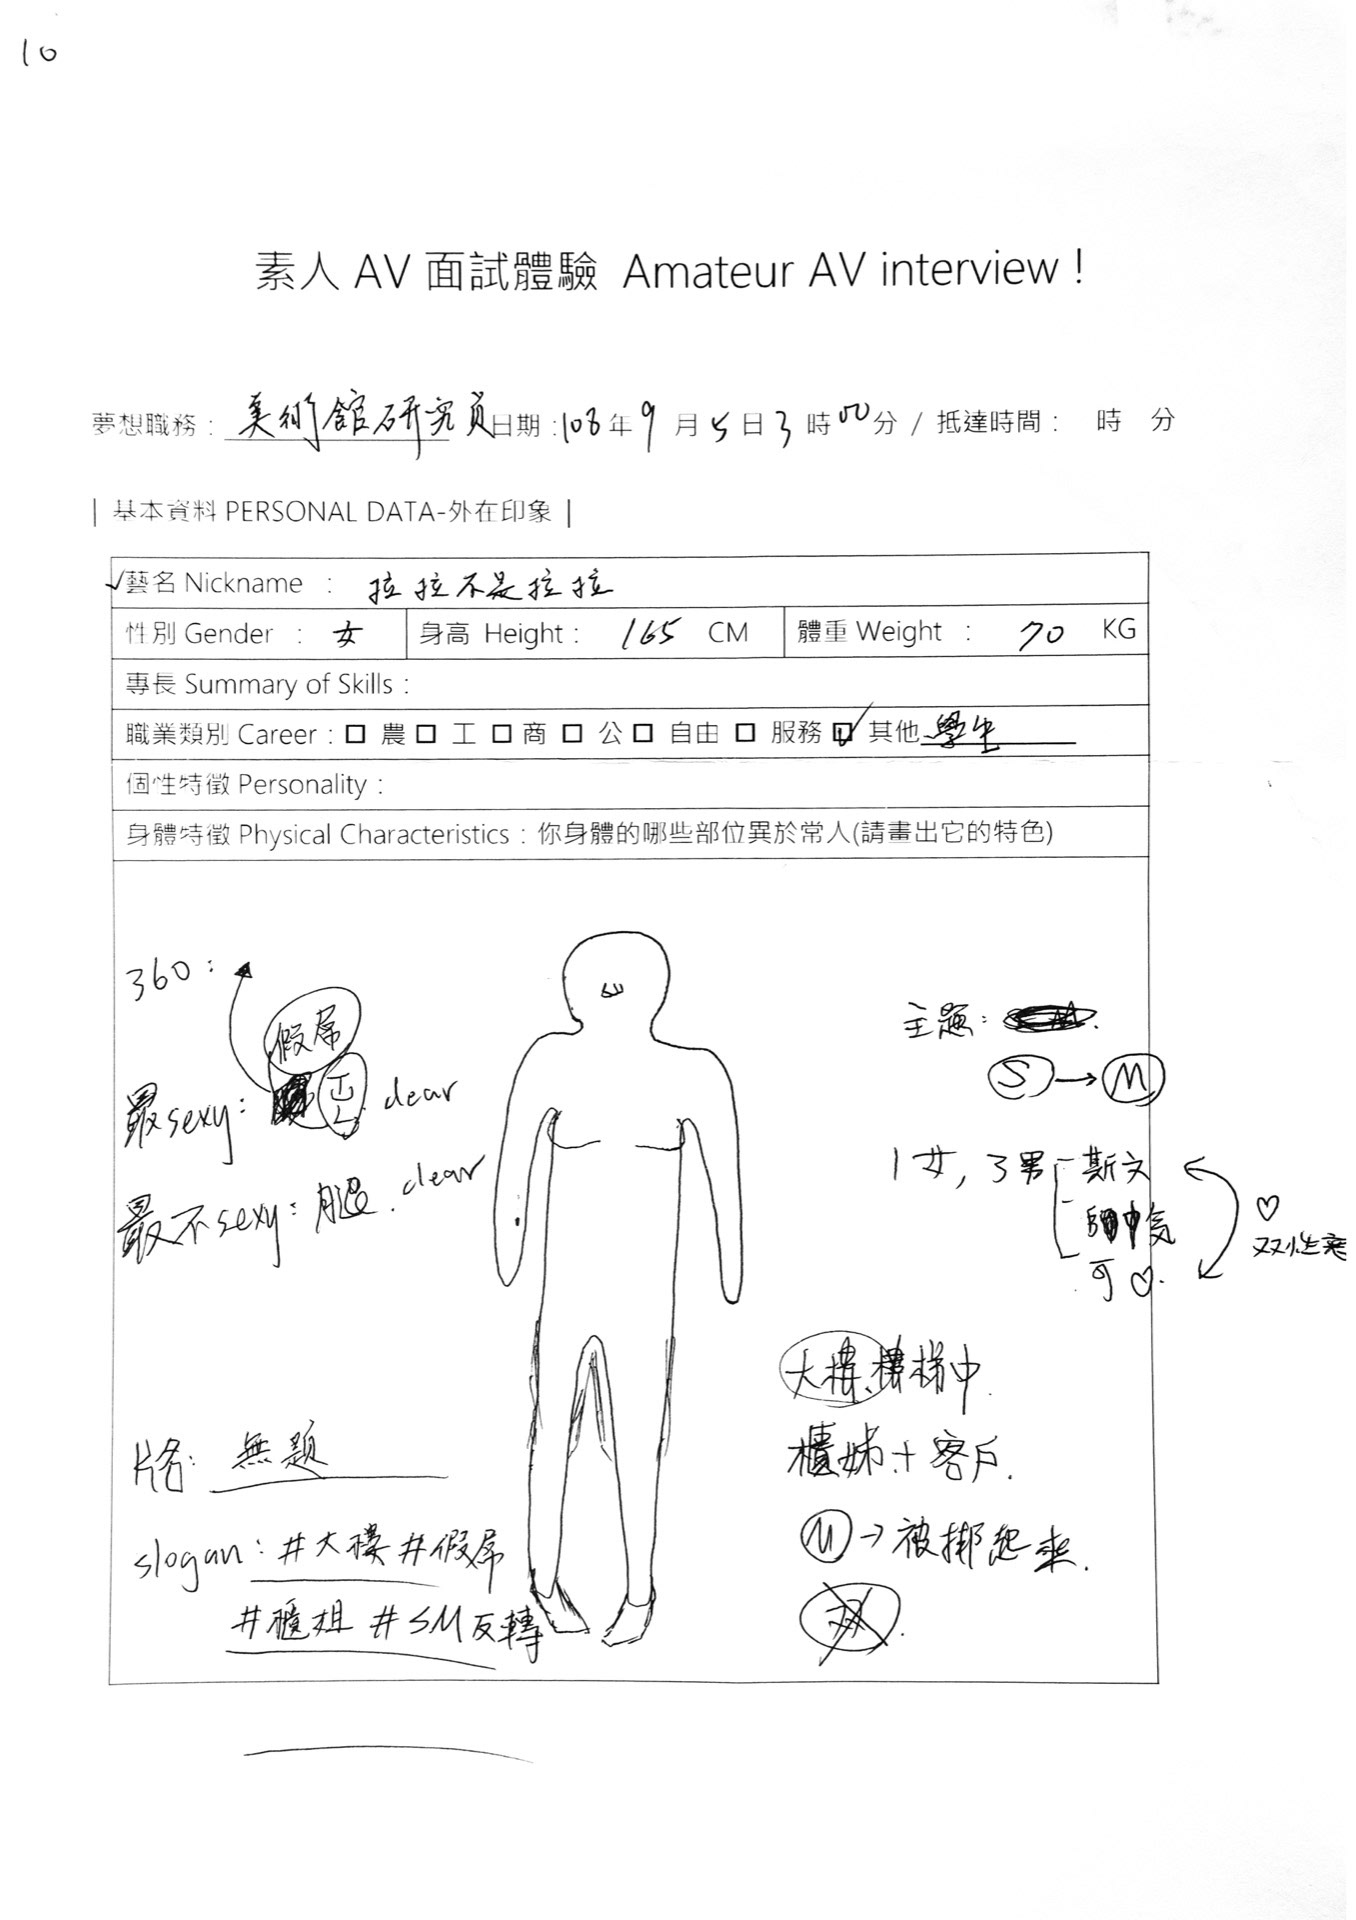 10
素人 AV 面試體驗 Amateur AV interview !
夢想職務 : 美術館研究員 日期 : 108 年 9 月 5 日 3 時 00 分 / 抵達時間 : 時 分
| 基本資料 PERSONAL DATA-外在印象 |
藝名 Nickname : 拉拉不是拉拉
性別 Gender : 女 身高 Height : 165 CM 體重 Weight : 70 KG
專長 Summary of Skills :
職業類別 Career : 農 工 商 公 自由 服務 其他 學生
個性特徵 Personality :
身體特徵 Physical Characteristics : 你身體的哪些部位異於常人(請畫出它的特色)
360 :
假屌
最sexy : dear
最不sexy : 腿. dear
主題 :
S → M
1女, 3男 斯文
可♡.
♡
双性恋
大樓、樓梯中.
櫃姊 + 客戶.
M → 被綁起來.
片名 : 無題
slogan : #大樓 #假屌
#櫃姐 #SM反轉